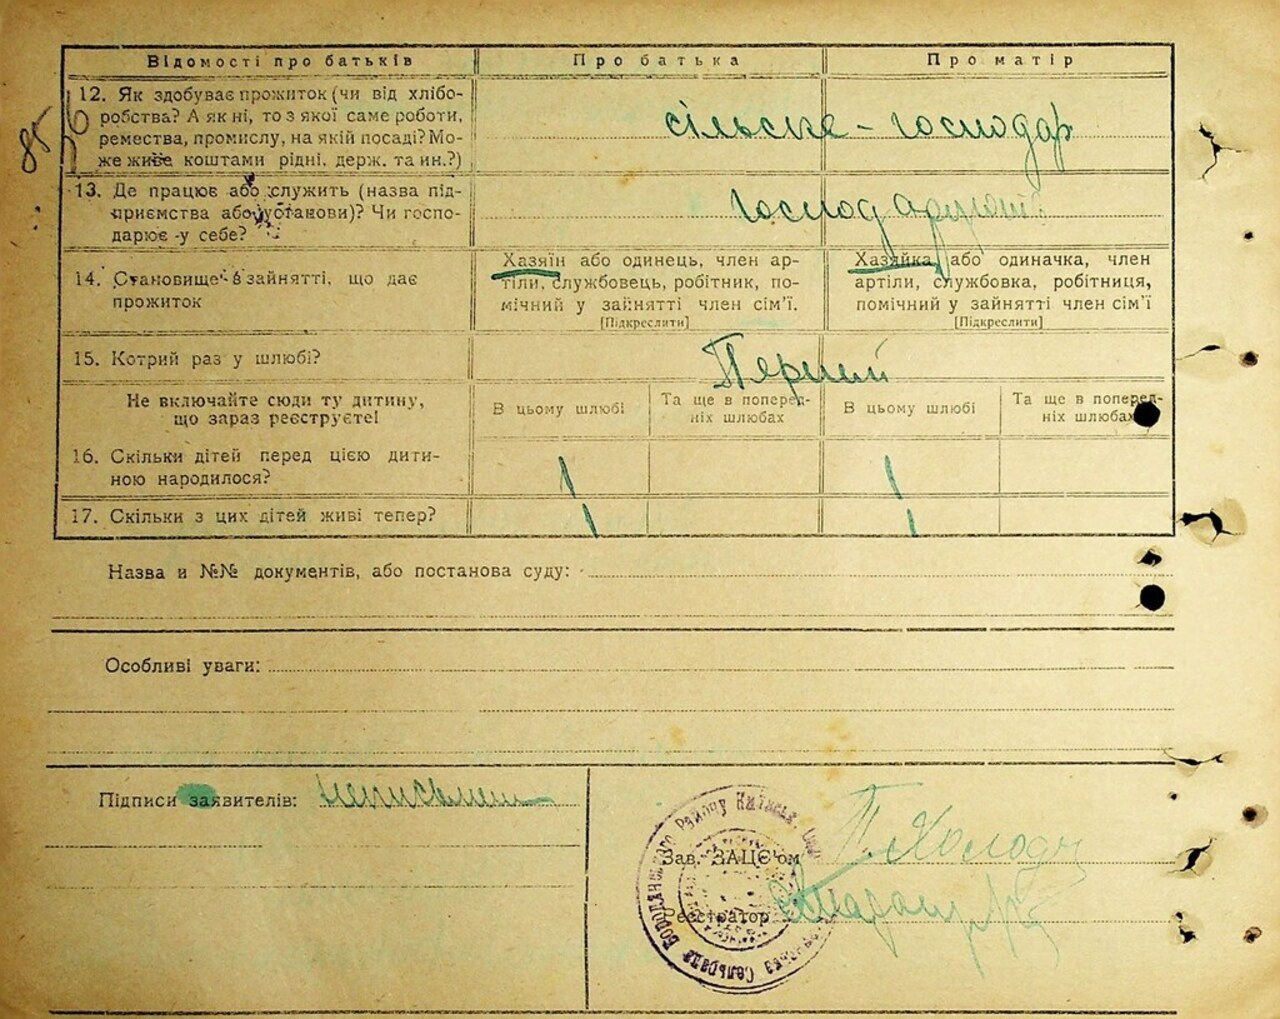 Відомості про батьків Про батька Про матір
12. Як здобуває прожиток (чи від хлібо-
робства? А як ні, то з якої саме роботи,
ремества, промислу, на якій посаді? Мо-
же живе коштами рідні, держ. та ин.?)
сільське - господар
85
13. Де працює або служить (назва під-
приємства або установи)? Чи госпо-
дарює у себе?
господарюют
14. Становище в зайнятті, що дає
прожиток
Хазяїн або одинець, член ар-
тіли, службовець, робітник, по-
мічний у зайнятті член сім'ї.
[Підкреслити]
Хазяйка або одиначка, член
артіли, службовка, робітниця,
помічний у зайнятті член сім'ї
[Підкреслити]
15. Котрий раз у шлюбі?
Перший
Не включайте сюди ту дитину,
що зараз реєструєте!
В цьому шлюбі
Та ще в поперед-
ніх шлюбах
В цьому шлюбі
Та ще в поперед-
ніх шлюбах
16. Скільки дітей перед цією дити-
ною народилося?
\ \
17. Скільки з цих дітей живі тепер?
\ \
Назва и №№ документів, або постанова суду:
Особливі уваги:
Підписи заявителів: неписьмен
Зав. ЗАЦС'ом П. Холод
Реєстратор
Бородянського Району Київськ.
Сельрада